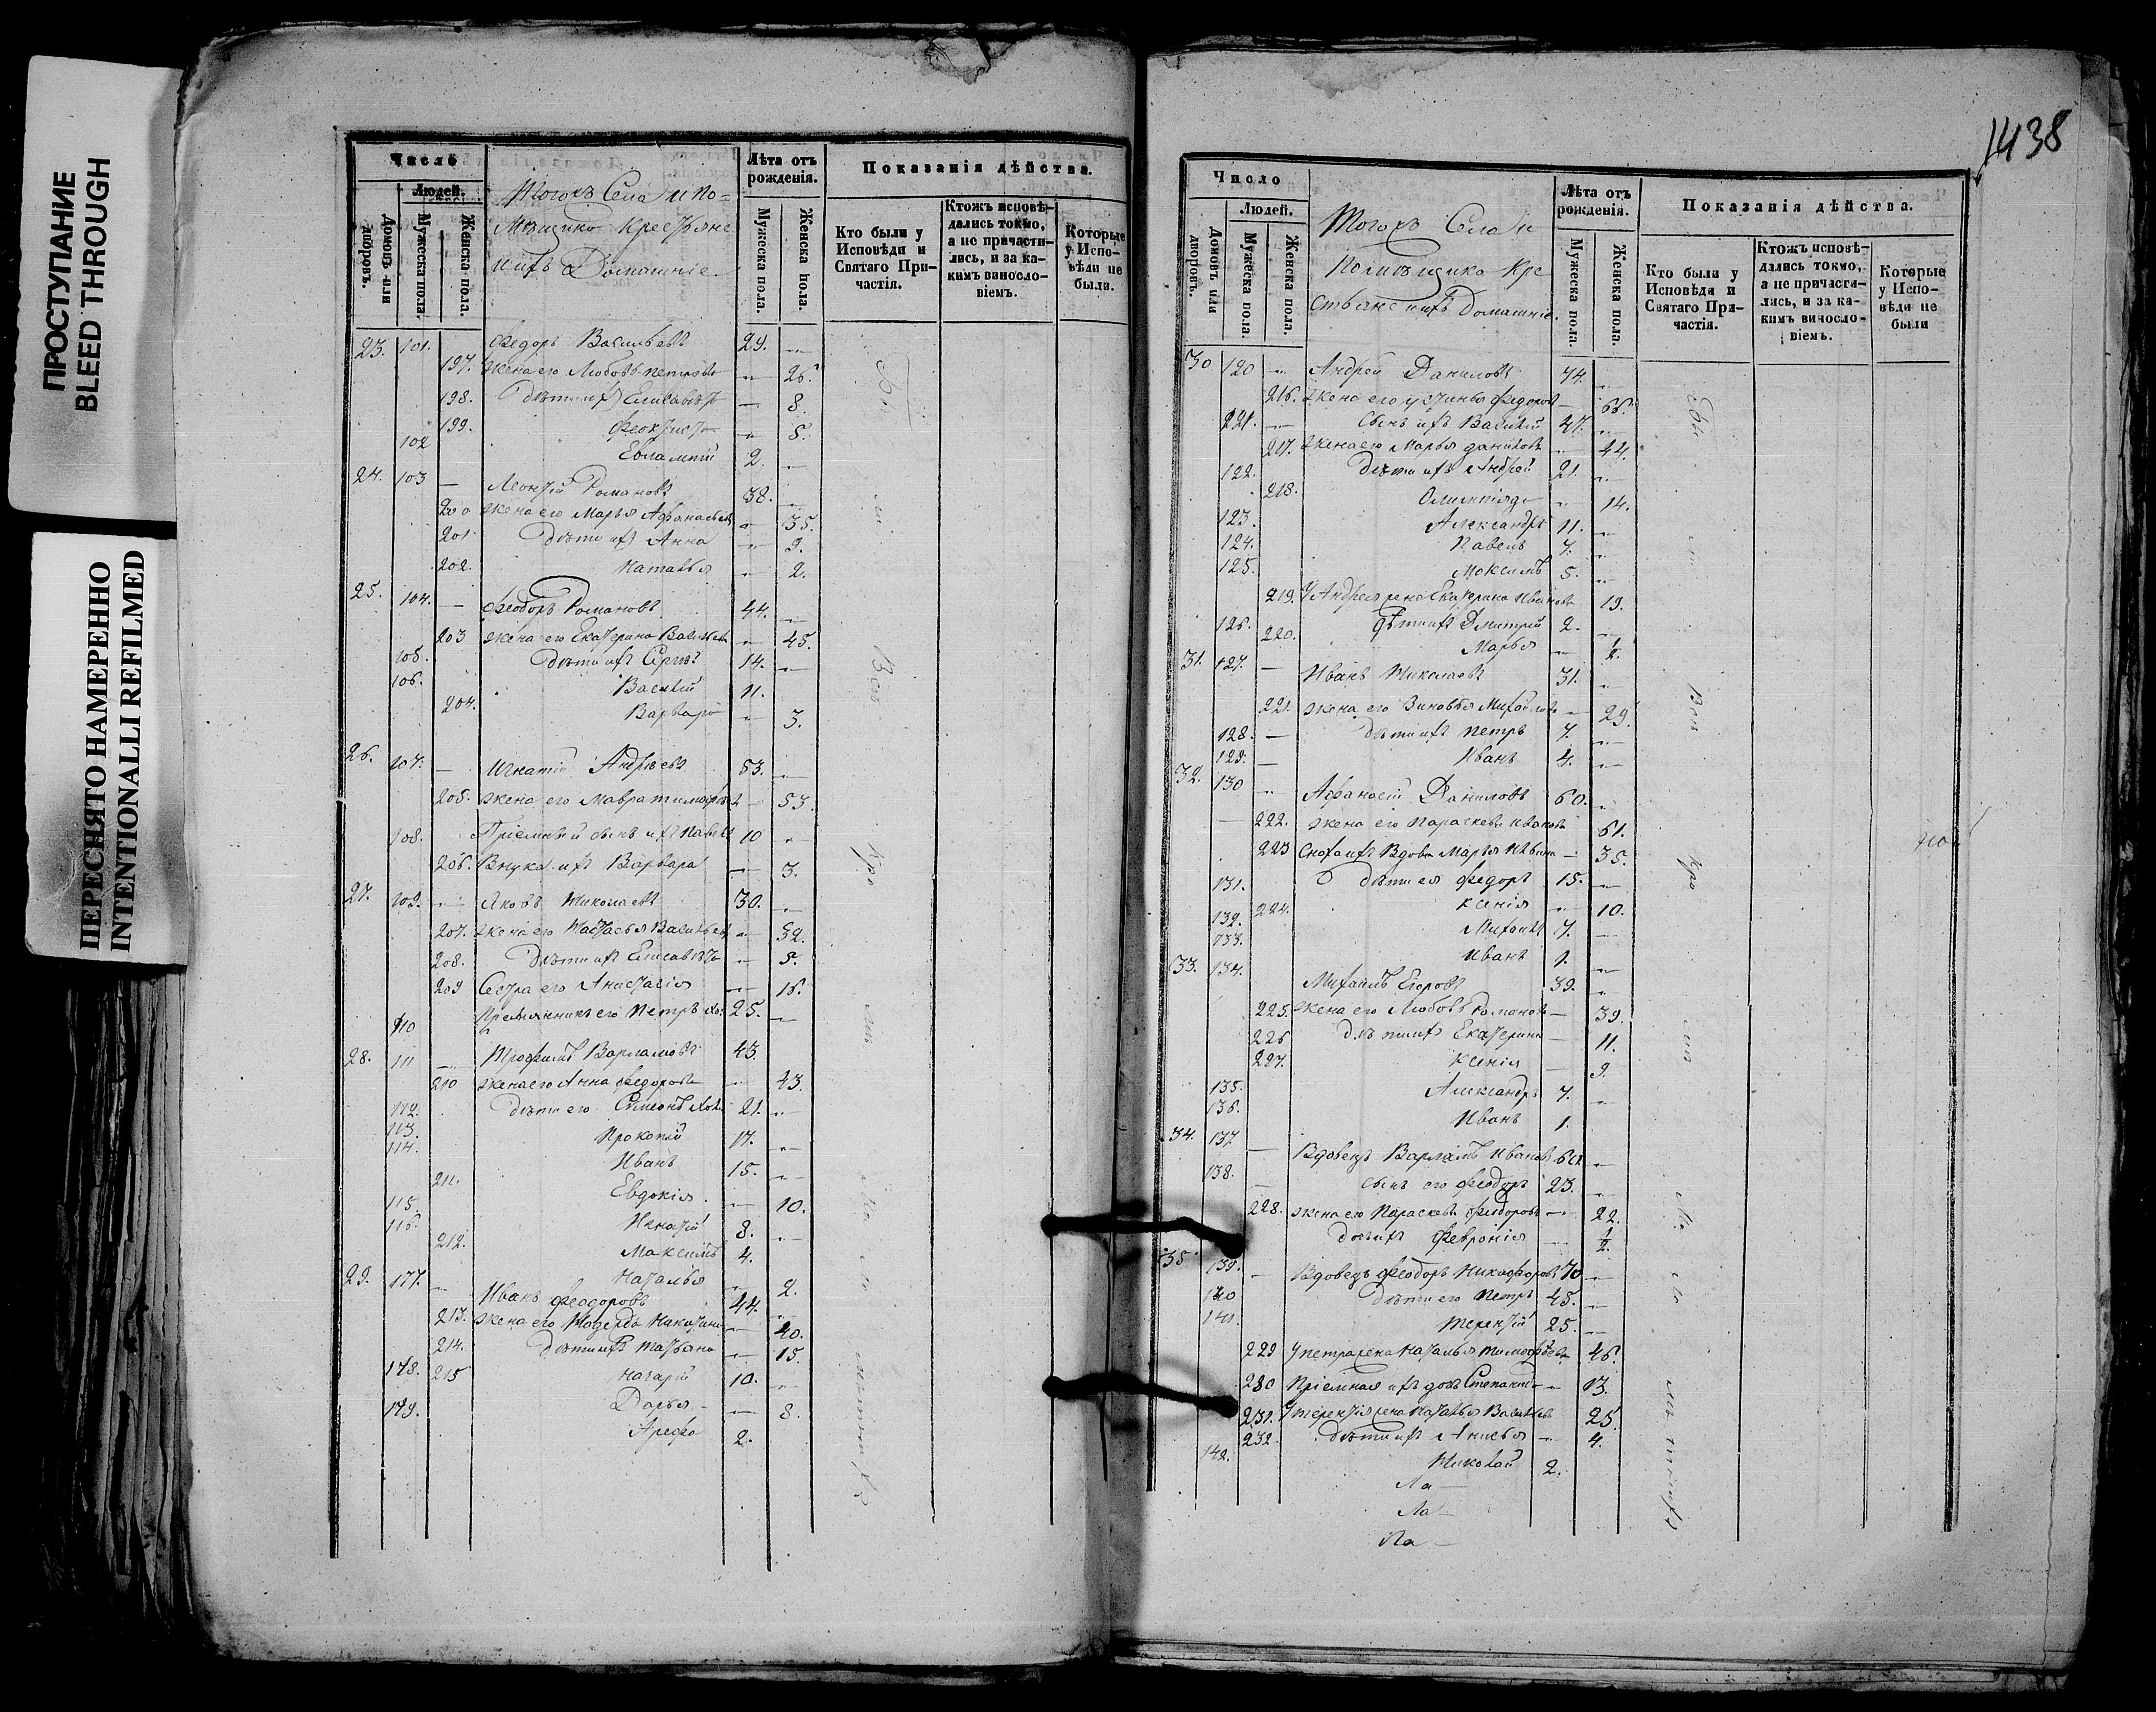 ПРОСТУПАНИЕ
BLEED THROUGH
ПЕРЕСНЯТО НАМЕРЕННО
INTENTIONALLI REFILMED
Число
Людей.
Домовъ или дворовъ.
Мужеска пола.
Женска пола.
Тогожъ Села и по=
мѣщика Крестьяне
ихъ Домашніе.
Лѣта отъ рожденія.
Мужеска пола.
Женска пола.
Показанія дѣйства.
Кто были у Исповѣди и Святаго При-частія.
Ктожъ исповѣ-дались токмо, а не причасти-лись, и за ка-кимъ виносло-віемъ.
Которые у Испо-вѣди не были.
23. 101. Федоръ Васильевъ 29.
197. жена его Любовь Петрова 26.
198. дѣти ихъ Елисавета 8.
199. Феоктиста 5.
102 Евлампій 2.
24. 103 — Леонтій Романовъ 38.
200 жена его Марья Афанасьева 35.
201 дѣти ихъ Анна 9.
202. Наталья 2.
25. 104. — Феодоръ Романовъ 44.
203 жена его Екатерина Васильева 45.
105. дѣти ихъ Сергѣй 14.
106. Василій 11.
204. Варвара 3.
26. 107. — Игнатій Андреевъ 53.
205. жена его Мавра Тимофѣева 53.
108. Пріемный сынъ ихъ Павелъ 10
206. Внука ихъ Варвара 3.
27. 109. Яковъ Николаевъ 30.
207. жена его Настасья Васильева 32.
208. дѣти ихъ Елисавета 5.
209 Сестра его Анастасія 16.
110 Племянникъ его Петръ 25.
28. 111 Трофимъ Варламовъ 43.
210 жена его Анна Федорова 43.
112. дѣти его Симеонъ 21.
113. Прокопій 17.
114. Иванъ 15.
211. Евдокія 10.
115. Игнатій 8.
116. Максимъ 4.
212. Наталья 2.
29. 117. Иванъ Феодоровъ 44.
213. жена его Никитина 40.
214. дѣти ихъ Татьяна 15.
118. Назарій 10.
215 Дарья 8.
119. Арефа 2.
Бы
ли
Всѣ
Кро
мѣ
1438
Число
Людей.
Домовъ или дворовъ.
Мужеска пола.
Женска пола.
Тогожъ Села и
Помѣщика Кре
стьяне ихъ Домашніе.
Лѣта отъ рожденія.
Мужеска пола.
Женска пола.
Показанія дѣйства.
Кто были у Исповѣди и Святаго При-частія.
Ктожъ исповѣ-дались токмо, а не причасти-лись, и за ка-кимъ виносло-віемъ.
Которые у Испо-вѣди не были
30 120 Андрей Даниловъ 74.
216. жена его Устинья Федорова 66.
121. Сынъ ихъ Василій 47.
217. жена его Марья Данилова 44.
122. дѣти ихъ Андрей 21.
218. Олимпіяда 14.
123. Александръ 11.
124. Павелъ 7.
125. Максимъ 5.
219. У Андрея жена Екатерина Иванова 19.
126. дѣти ихъ Дмитрій 2.
220. Марья ½.
31. 127. — Иванъ Николаевъ 31.
221. жена его Зиновья Михайлова 29.
128. — дѣти ихъ Петръ 7.
129. — Иванъ 4.
32. 130 Афанасій Даниловъ 60.
222. жена его Параскева Иванова 61.
223 Сноха ихъ Вдова Марья 35.
131. дѣти ея Федоръ 15.
224. Ксенія 10.
132. Михаилъ 7.
133. Иванъ 1.
33. 134. Михаилъ Егоровъ 39.
225. жена его Любовь Романова 39.
226 дѣти ихъ Екатерина 11.
227. Ксенія 9.
135. Александръ 7.
136. Иванъ 1.
34. 137 — Вдовецъ Варламъ Ивановъ 60.
138. сынъ его Феодоръ 23.
228. жена его Параскева Феодорова 22.
дочь ихъ Февронія ½.
35 139. — Вдовецъ Феодоръ Никифоровъ 70
140 дѣти его Петръ 45.
141. Терентій 25.
229 У Петра жена Наталья Тимофѣева 46.
230 Пріемная ихъ дочь Степанида 13.
231. У Терентія жена Наталья Васильева 25.
232. дѣти ихъ Анисья 4.
142. Николай 2.
Ла
Ла
Ла
Бы
ли
Всѣ
Кро